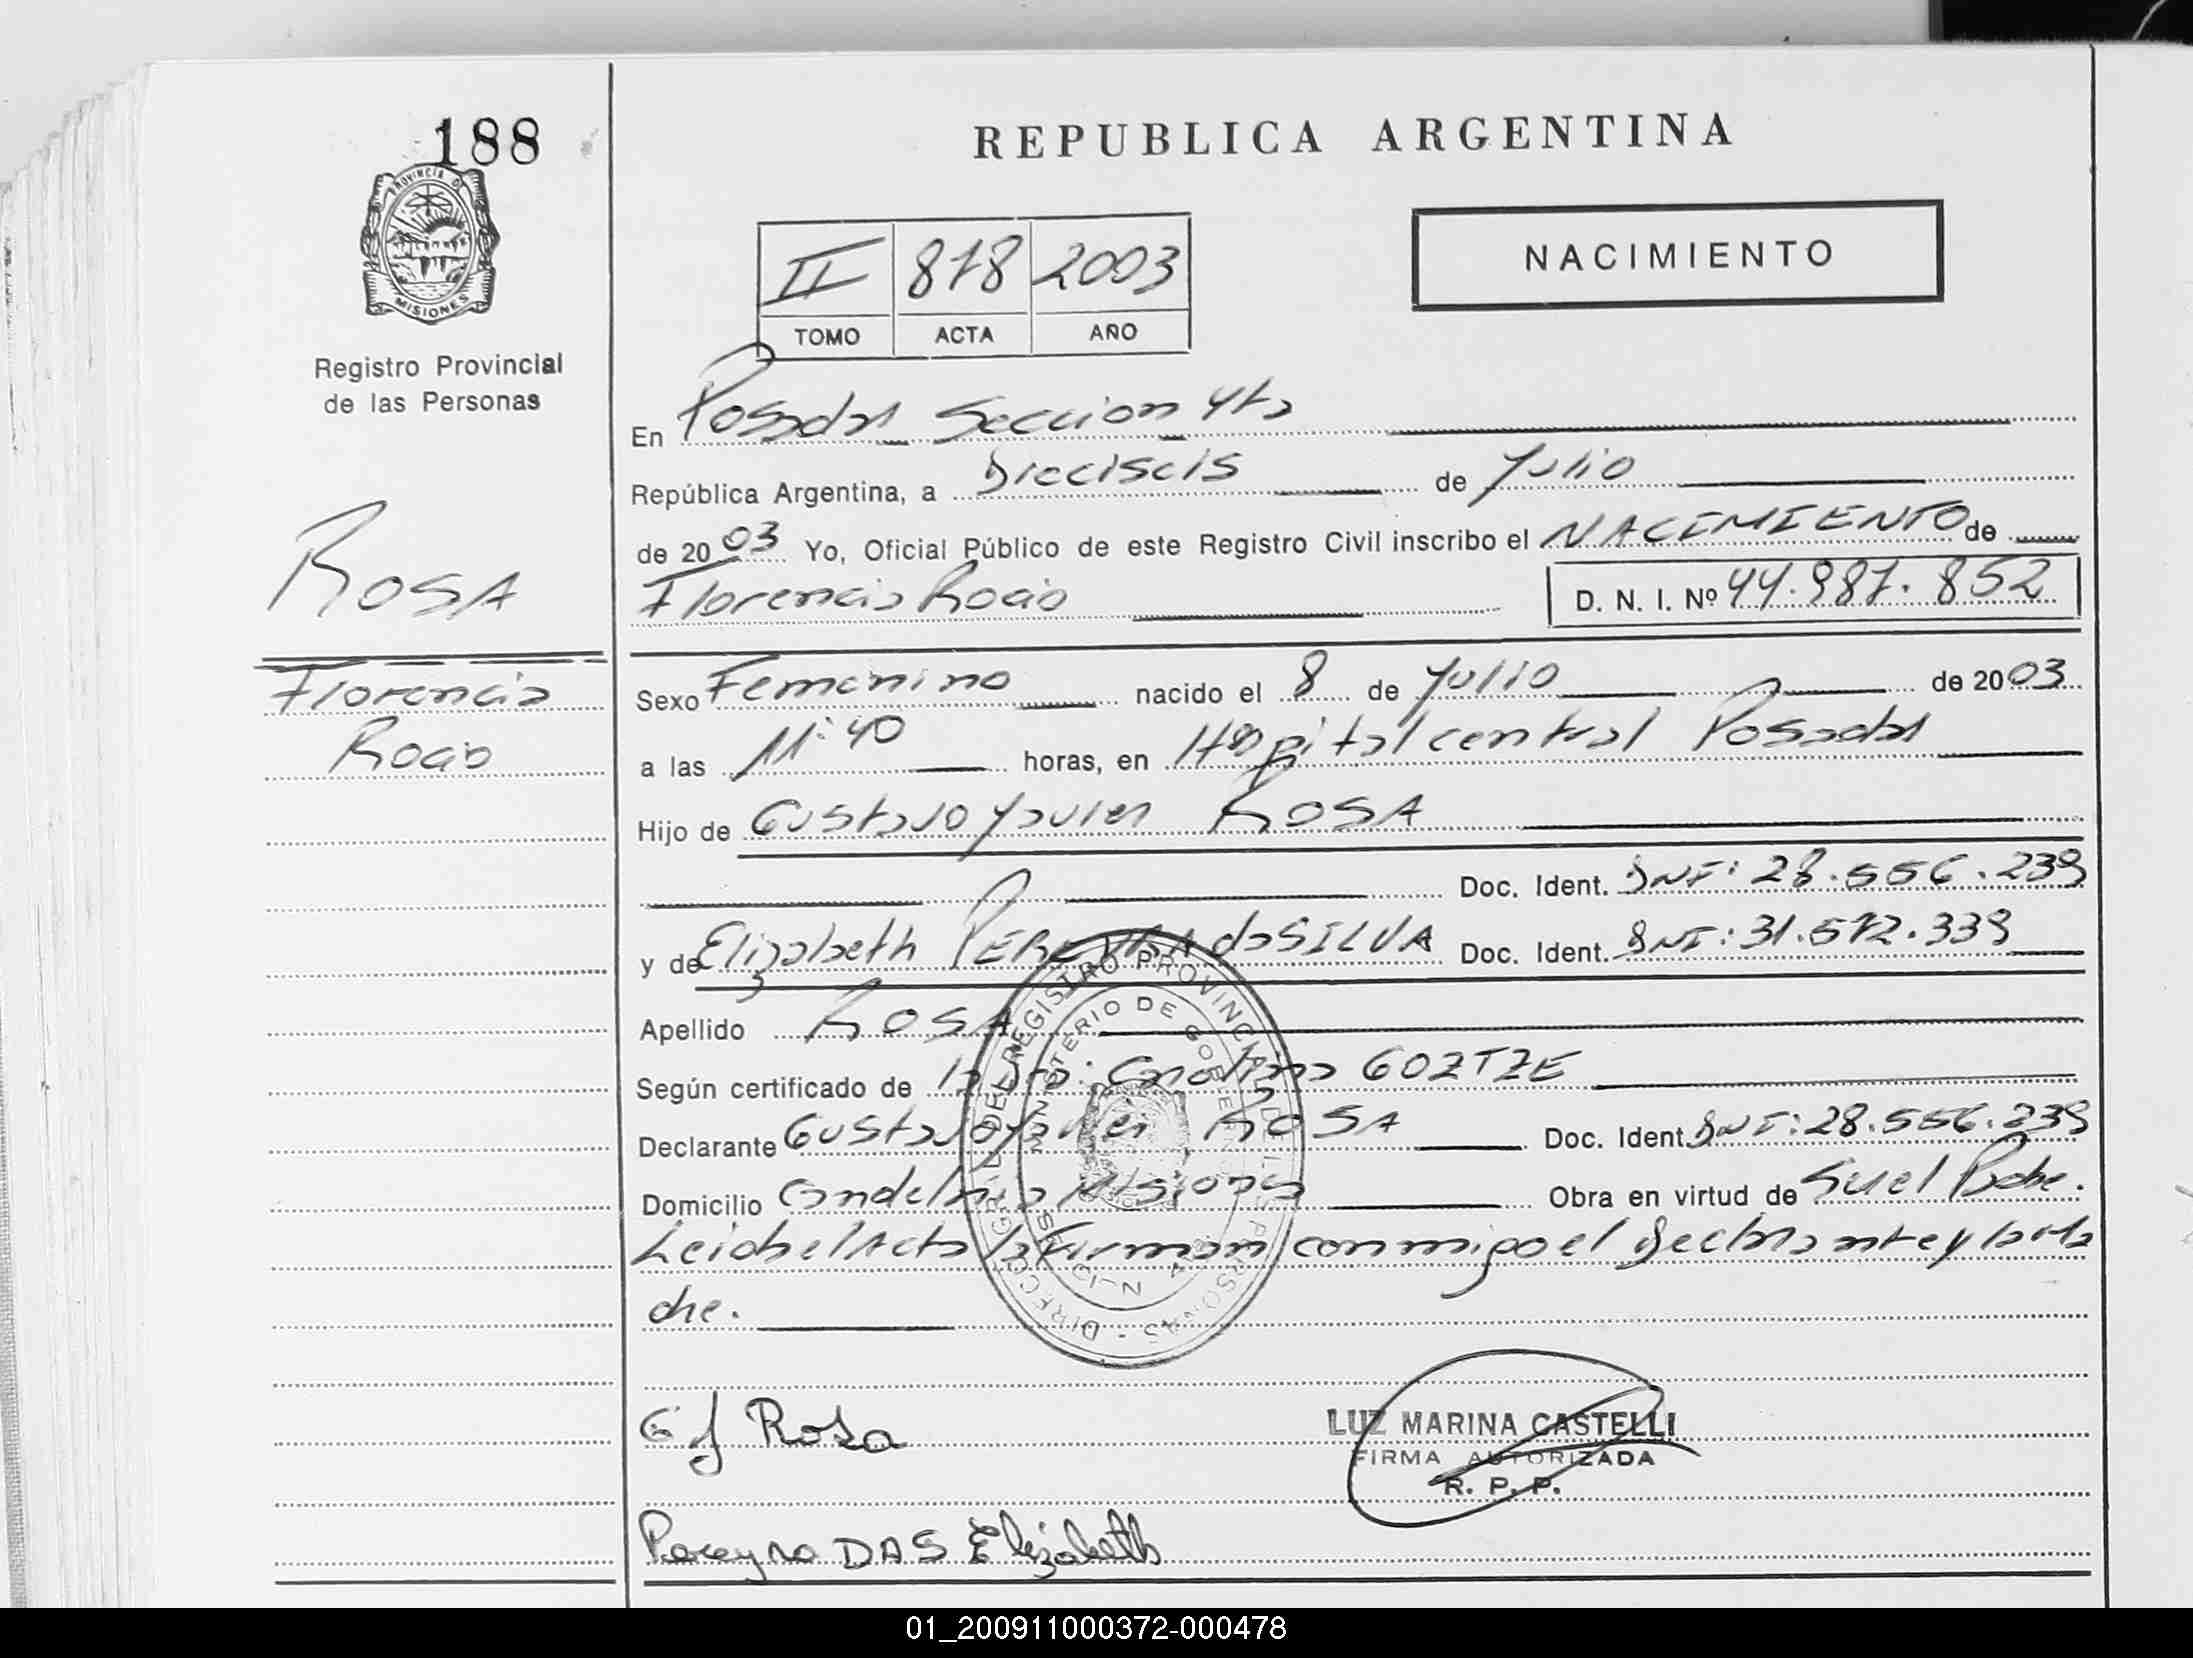 188
PROVINCIA D
MISIONES
Registro Provincial
de las Personas
ROSA
Florencia
Rocio
REPUBLICA ARGENTINA
NACIMIENTO
II 878 2003
TOMO ACTA AÑO
En Posadas Seccion 4ta
República Argentina, a Dieciseis de Julio
de 2003 Yo, Oficial Público de este Registro Civil inscribo el NACIMIENTO de
Florencia Rocio D. N. I. Nº 44.987.852
Sexo Femenino nacido el 8 de Julio de 2003
a las 11:40 horas, en Hospital central Posadas
Hijo de Gustavo Javier ROSA
Doc. Ident. DNI: 28.556.239
y de Elizabeth PEREYRA da SILVA Doc. Ident. DNI: 31.572.339
Apellido ROSA
Según certificado de la Dra: Carolina GOZTZE
Declarante Gustavo Javier ROSA Doc. Ident. DNI: 28.556.239
Domicilio Candelaria Misiones Obra en virtud de
Leida el Acta la Firman conmigo el Declarante y la Ma
dre.
DIRECC. GRAL. DEL REGISTRO PROVINCIAL DE LAS PERSONAS
MINISTERIO DE GOBIERNO
G J Rosa
LUZ MARINA CASTELLI
FIRMA AUTORIZADA
R. P. P.
Pereyra DAS Elizabeth
01_200911000372-000478